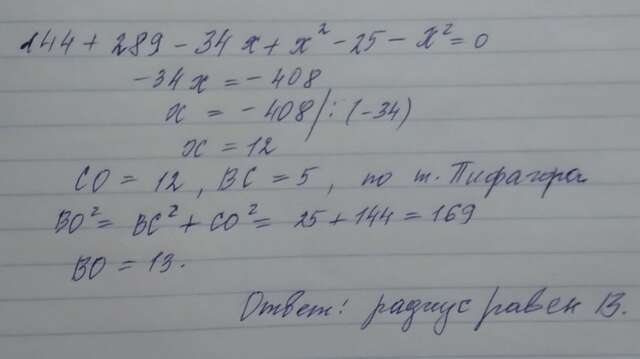 144 + 289 - 34x + x² - 25 - x² = 0
-34x = -408
x = -408 /: (-34)
x = 12
CO = 12, BC = 5, по т. Пифагора
BO² = BC² + CO² = 25 + 144 = 169
BO = 13.
Ответ: радиус равен 13.